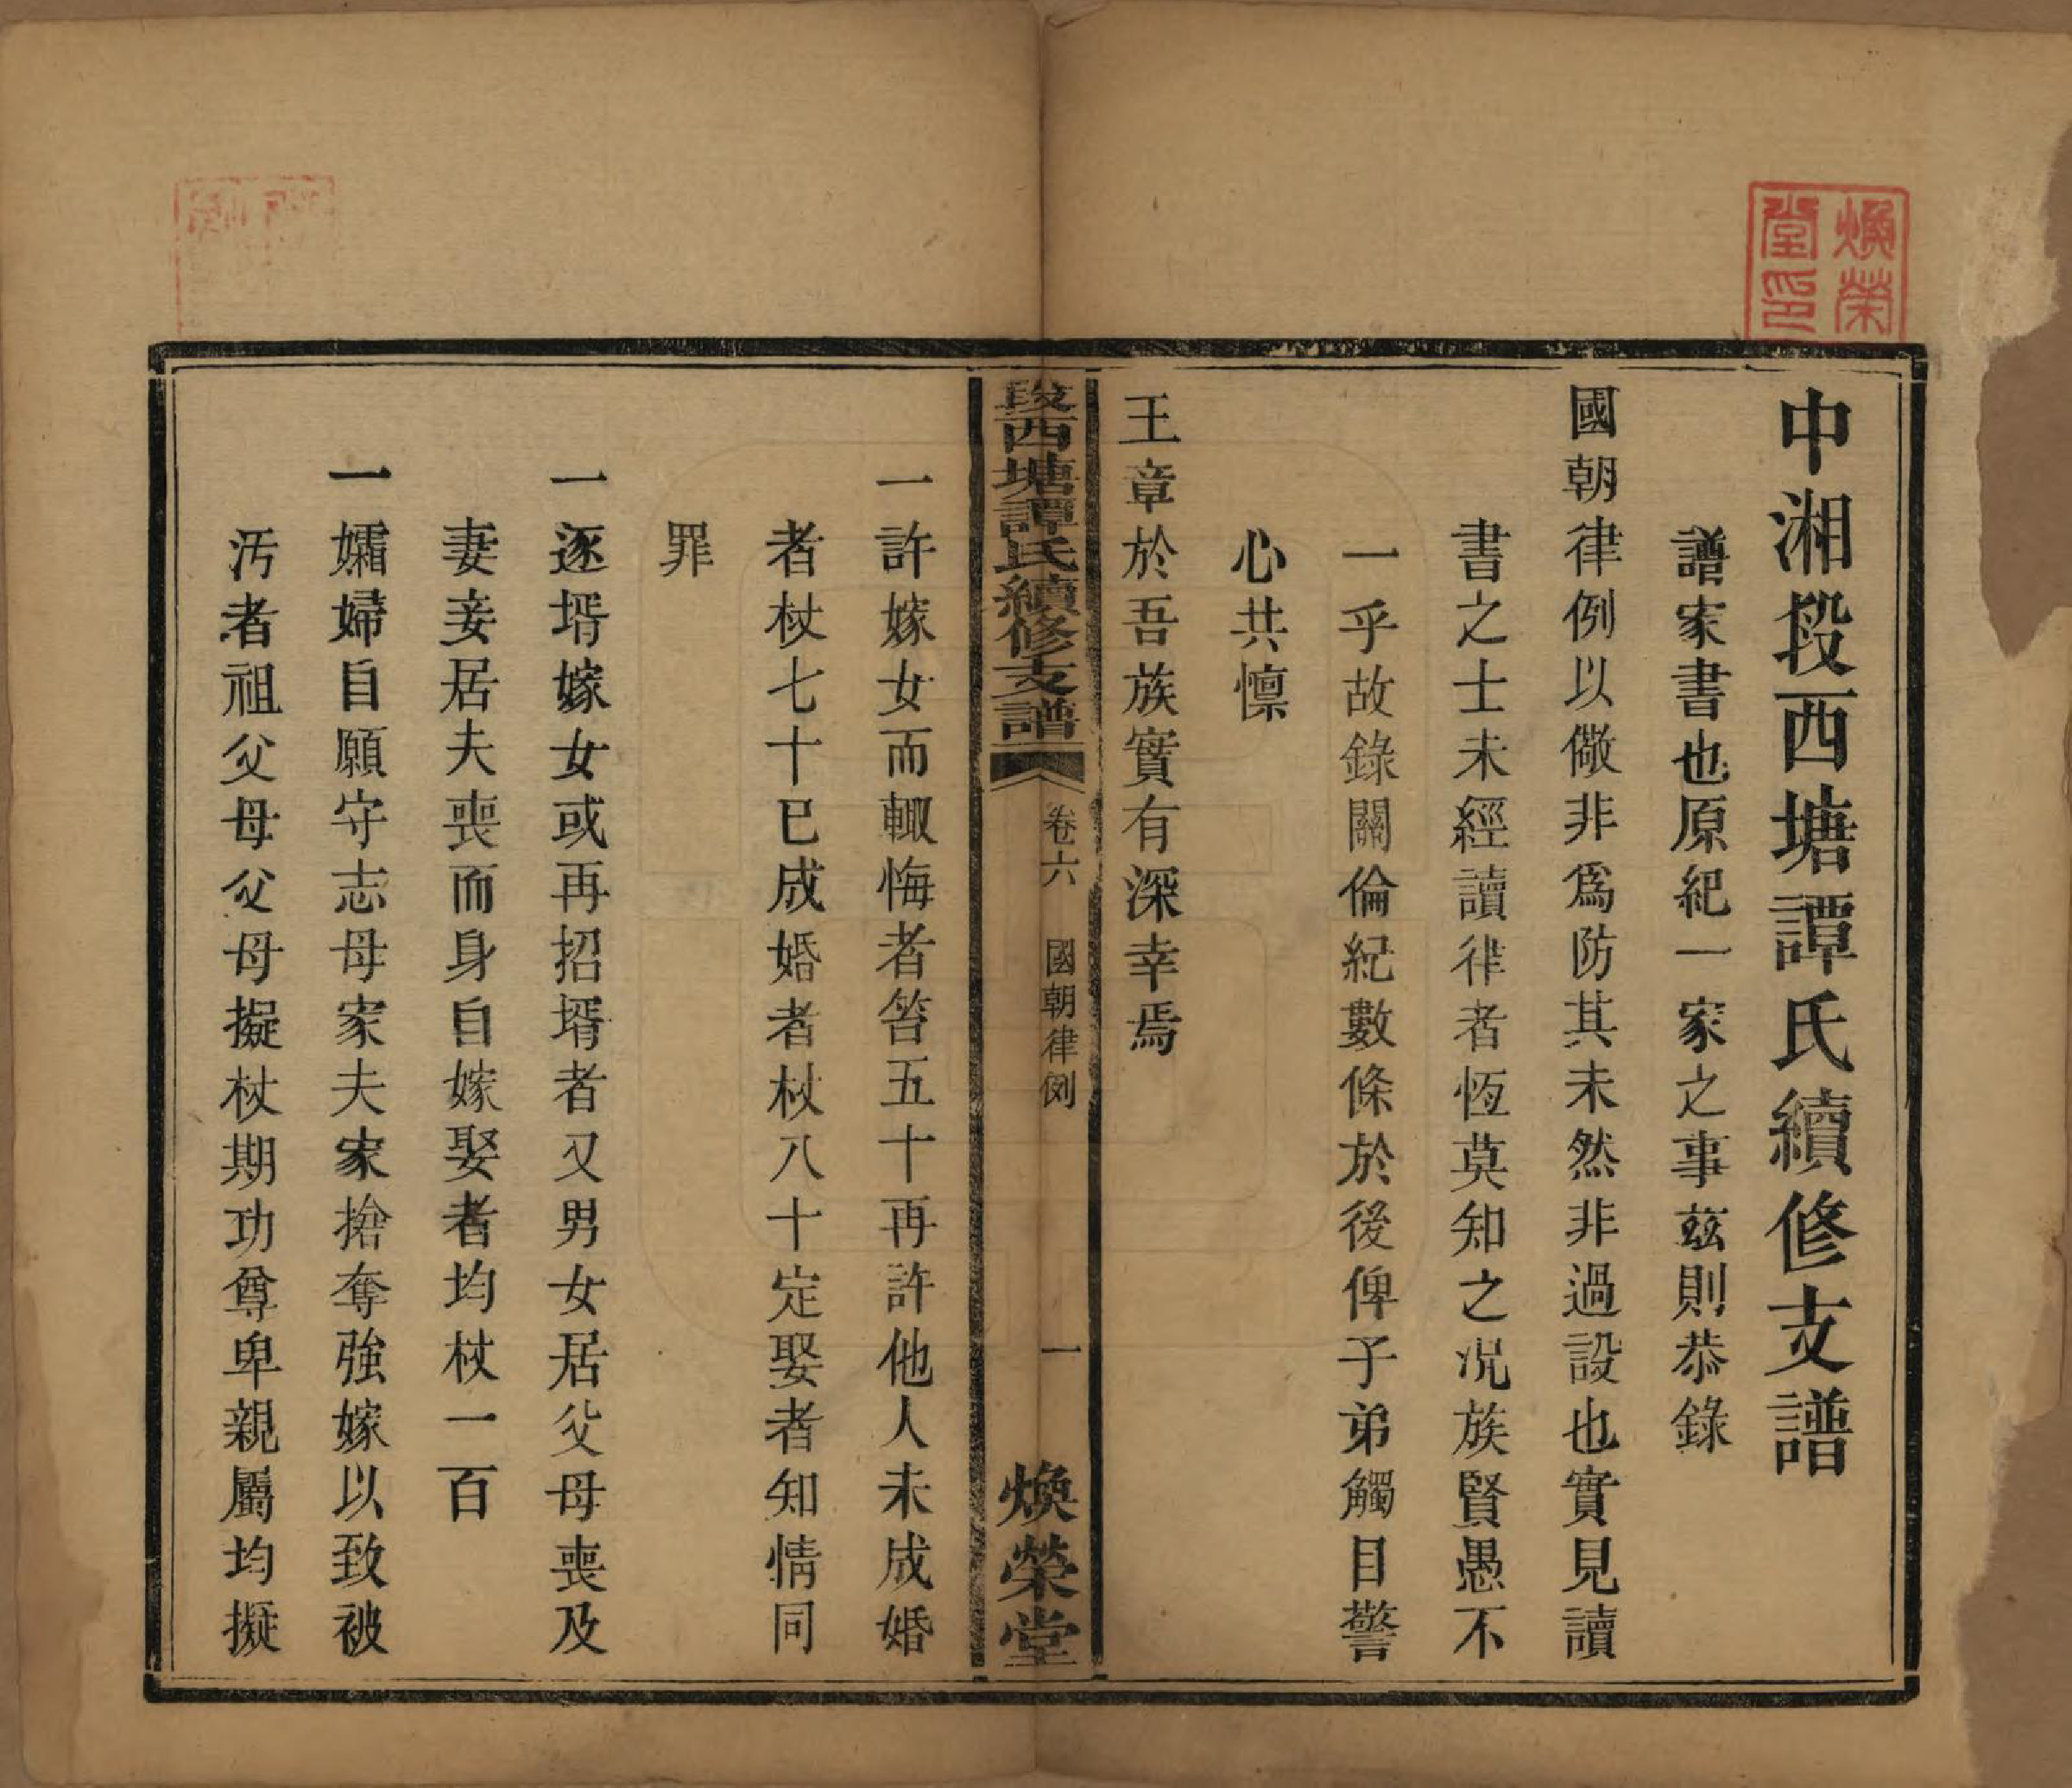 煥榮
堂印
中湘段西塘譚氏續修支譜
譜家書也原紀一家之事茲則恭錄
國朝律例以儆非爲防其未然非過設也實見讀
書之士未經讀律者恆莫知之況族賢愚不
一乎故錄關倫紀數條於後俾子弟觸目警
心共懍
王章於吾族實有深幸焉
段西塘譚氏續修支譜
卷六 國朝律例
一
煥榮堂
一許嫁女而輙悔者笞五十再許他人未成婚
者杖七十已成婚者杖八十定娶者知情同
罪
一逐壻嫁女或再招壻者又男女居父母喪及
妻妾居夫喪而身自嫁娶者均杖一百
一孀婦自願守志母家夫家搶奪強嫁以致被
汚者祖父母父母擬杖期功尊卑親屬均擬